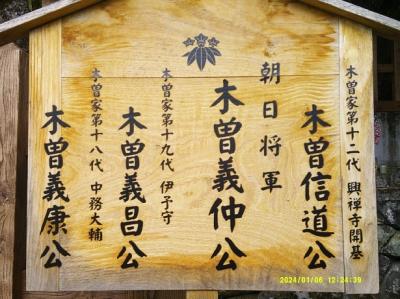 木曽家第十二代 興禅寺開基
木曽信道公
朝日将軍
木曽義仲公
木曽家第十九代 伊予守
木曽義昌公
木曽家第十八代 中務大輔
木曽義康公
2024/01/06 12:24:39